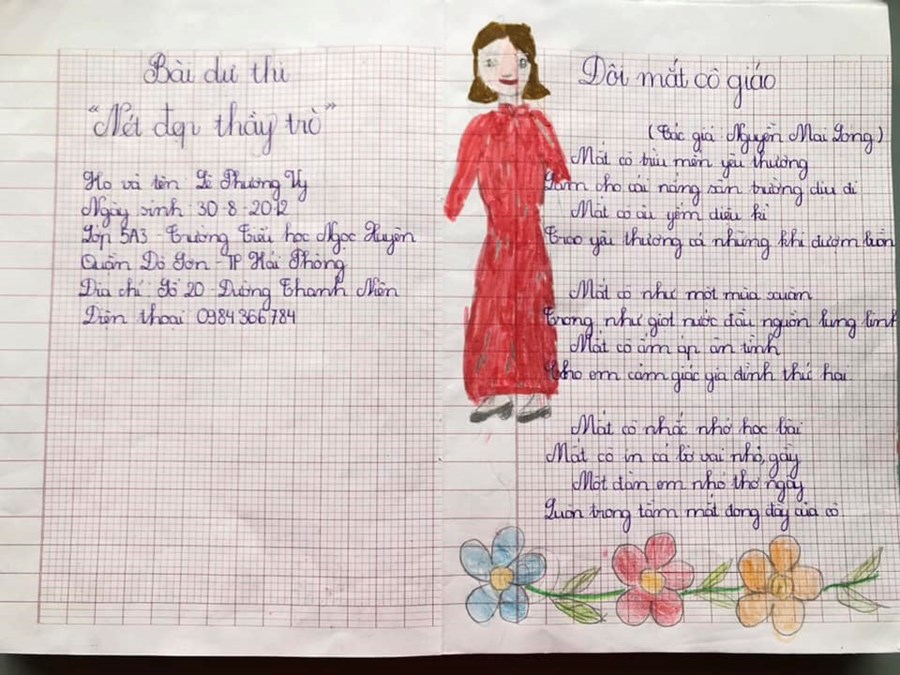 Bài dự thi
“Nét đẹp thầy trò”
Họ và tên Lê Phương Vy
Ngày sinh 30-8-2012
Lớp 5A3 - Trường Tiểu học Ngọc Xuyên
Quận Đồ Sơn - TP Hải Phòng
Địa chỉ Số 20 Đường Thanh Niên
Điện thoại 0984366784
Đôi mắt cô giáo
(Tác giả Nguyễn Mai Long)
Mắt cô trìu mến yêu thương
Làm cho cái nắng sân trường dịu đi
Mắt cô âu yếm diệu kì
Trao yêu thương cả những khi đượm buồn
Mắt cô như một mùa xuân
Trong như giọt nước đầu nguồn lung linh
Mắt cô ấm áp ân tình
Cho em cảm giác gia đình thứ hai
Mắt cô nhắc nhở học bài
Mắt cô in cả bờ vai nhỏ, gầy
Một đàn em nhỏ thơ ngây
Luôn trong tầm mắt đong đầy của cô